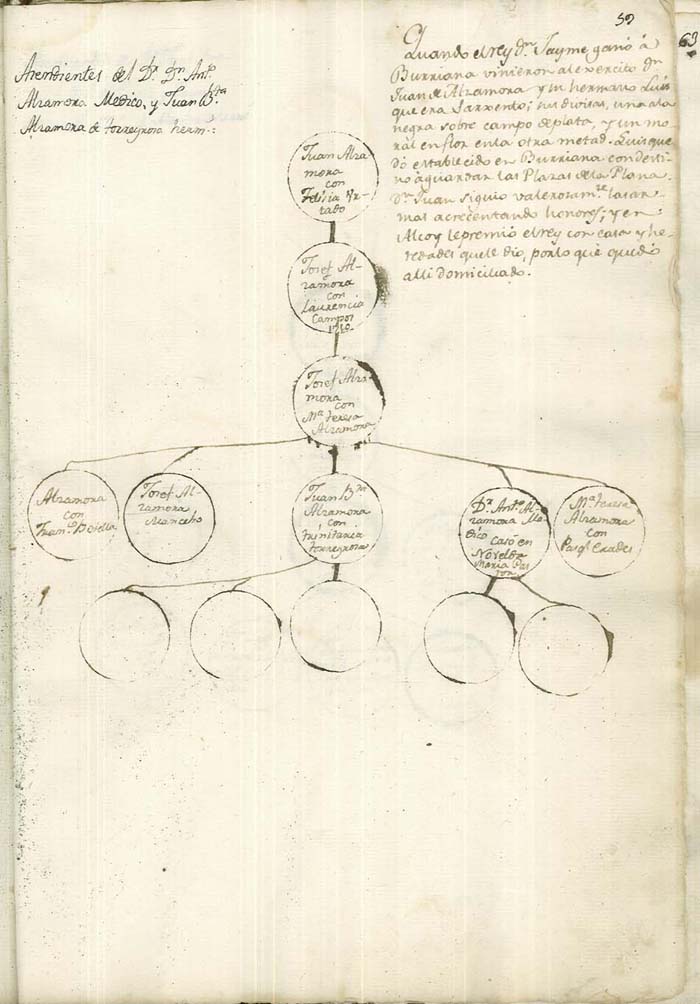 59
63
Asendientes del Dr. Dn. Anto.
Alzamora Medico, y Juan Bta.
Alzamora de torregrosa herm.:
Quando el rey dn. Jayme ganó á
Burriana vinieron al exercito dn
Juan de Alzamora y su hermano Luis
que era Sarxento; sus divisas, una ala
negra sobre campo de plata, y un mo-
ral en flor en la otra metad. Luis que-
dó establecido en Burriana con desti-
no á guardar las Plazas de la Plana
dn. Juan siguio valerosamte. las ar-
mas acrecentando honores; y en
Alcoy le premió el rey con casa y he-
redades que le dio, por lo que quedó
alli domiciliado.
Juan Alza-
mora
con
Felicia Ur-
tado
Josef Al-
zamora
con
Laurencia
Campos
Josef Alza-
mora
con
Ma. teresa
Alzamora
Alzamora
con
Franco. Botella
Josef Al-
zamora
Mancebo
Juan Bta
Alzamora
con
trinitaria
torregrosa
Dr. Anto. Al-
zamora Me-
dico casó en
Novelda
Maria Pas-
tor
Ma. teresa
Alzamora
con
Pasql.